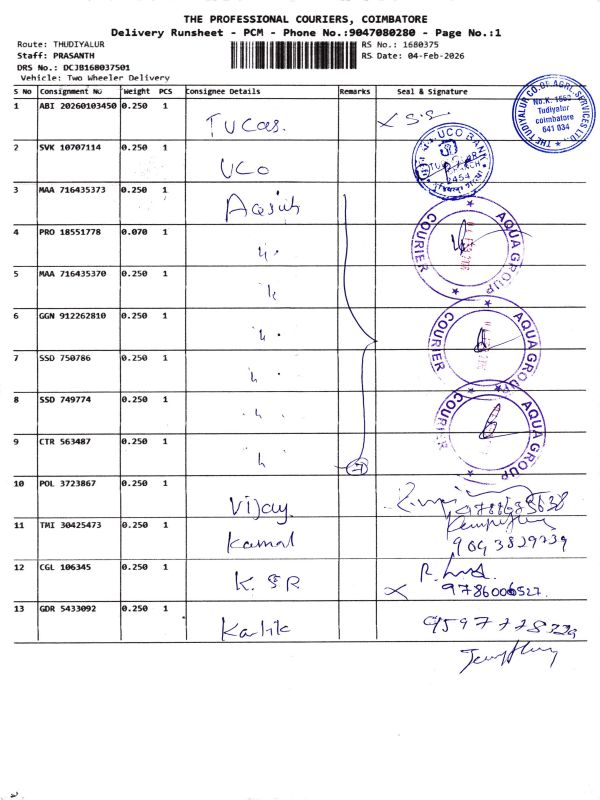 THE PROFESSIONAL COURIERS, COIMBATORE
Delivery Runsheet - PCM - Phone No.:9047080280 - Page No.:1
Route: THUDIYALUR
RS No.: 1680375
Staff: PRASANTH
RS Date: 04-Feb-2026
DRS No.: DCJB168037501
Vehicle: Two Wheeler Delivery
S No Consignment NO Weight PCS Consignee Details Remarks Seal & Signature
1 ABI 20260103450 0.250 1 TUCAS. X S.S.
THE TUDIYALUR CO.OP.AGRL.SERVICES LTD.
No.K. 1563
Tudiyalur
coimbatore
641 034
2 SVK 10707114 0.250 1 UCO
UCO BANK
3 MAA 716435373 0.250 1
4 PRO 18551778 0.070 1 "
AQUA GROUP COURIER
5 MAA 716435370 0.250 1 "
6 GGN 912262810 0.250 1 "
AQUA GROUP COURIER
7 SSD 750786 0.250 1 "
8 SSD 749774 0.250 1 "
AQUA GROUP COURIER
9 CTR 563487 0.250 1 "
7
10 POL 3723867 0.250 1 Vijay
11 TMI 30425473 0.250 1 Kamal
9043829239
12 CGL 106345 0.250 1 X 9786006527.
13 GDR 5433092 0.250 1 Kartik